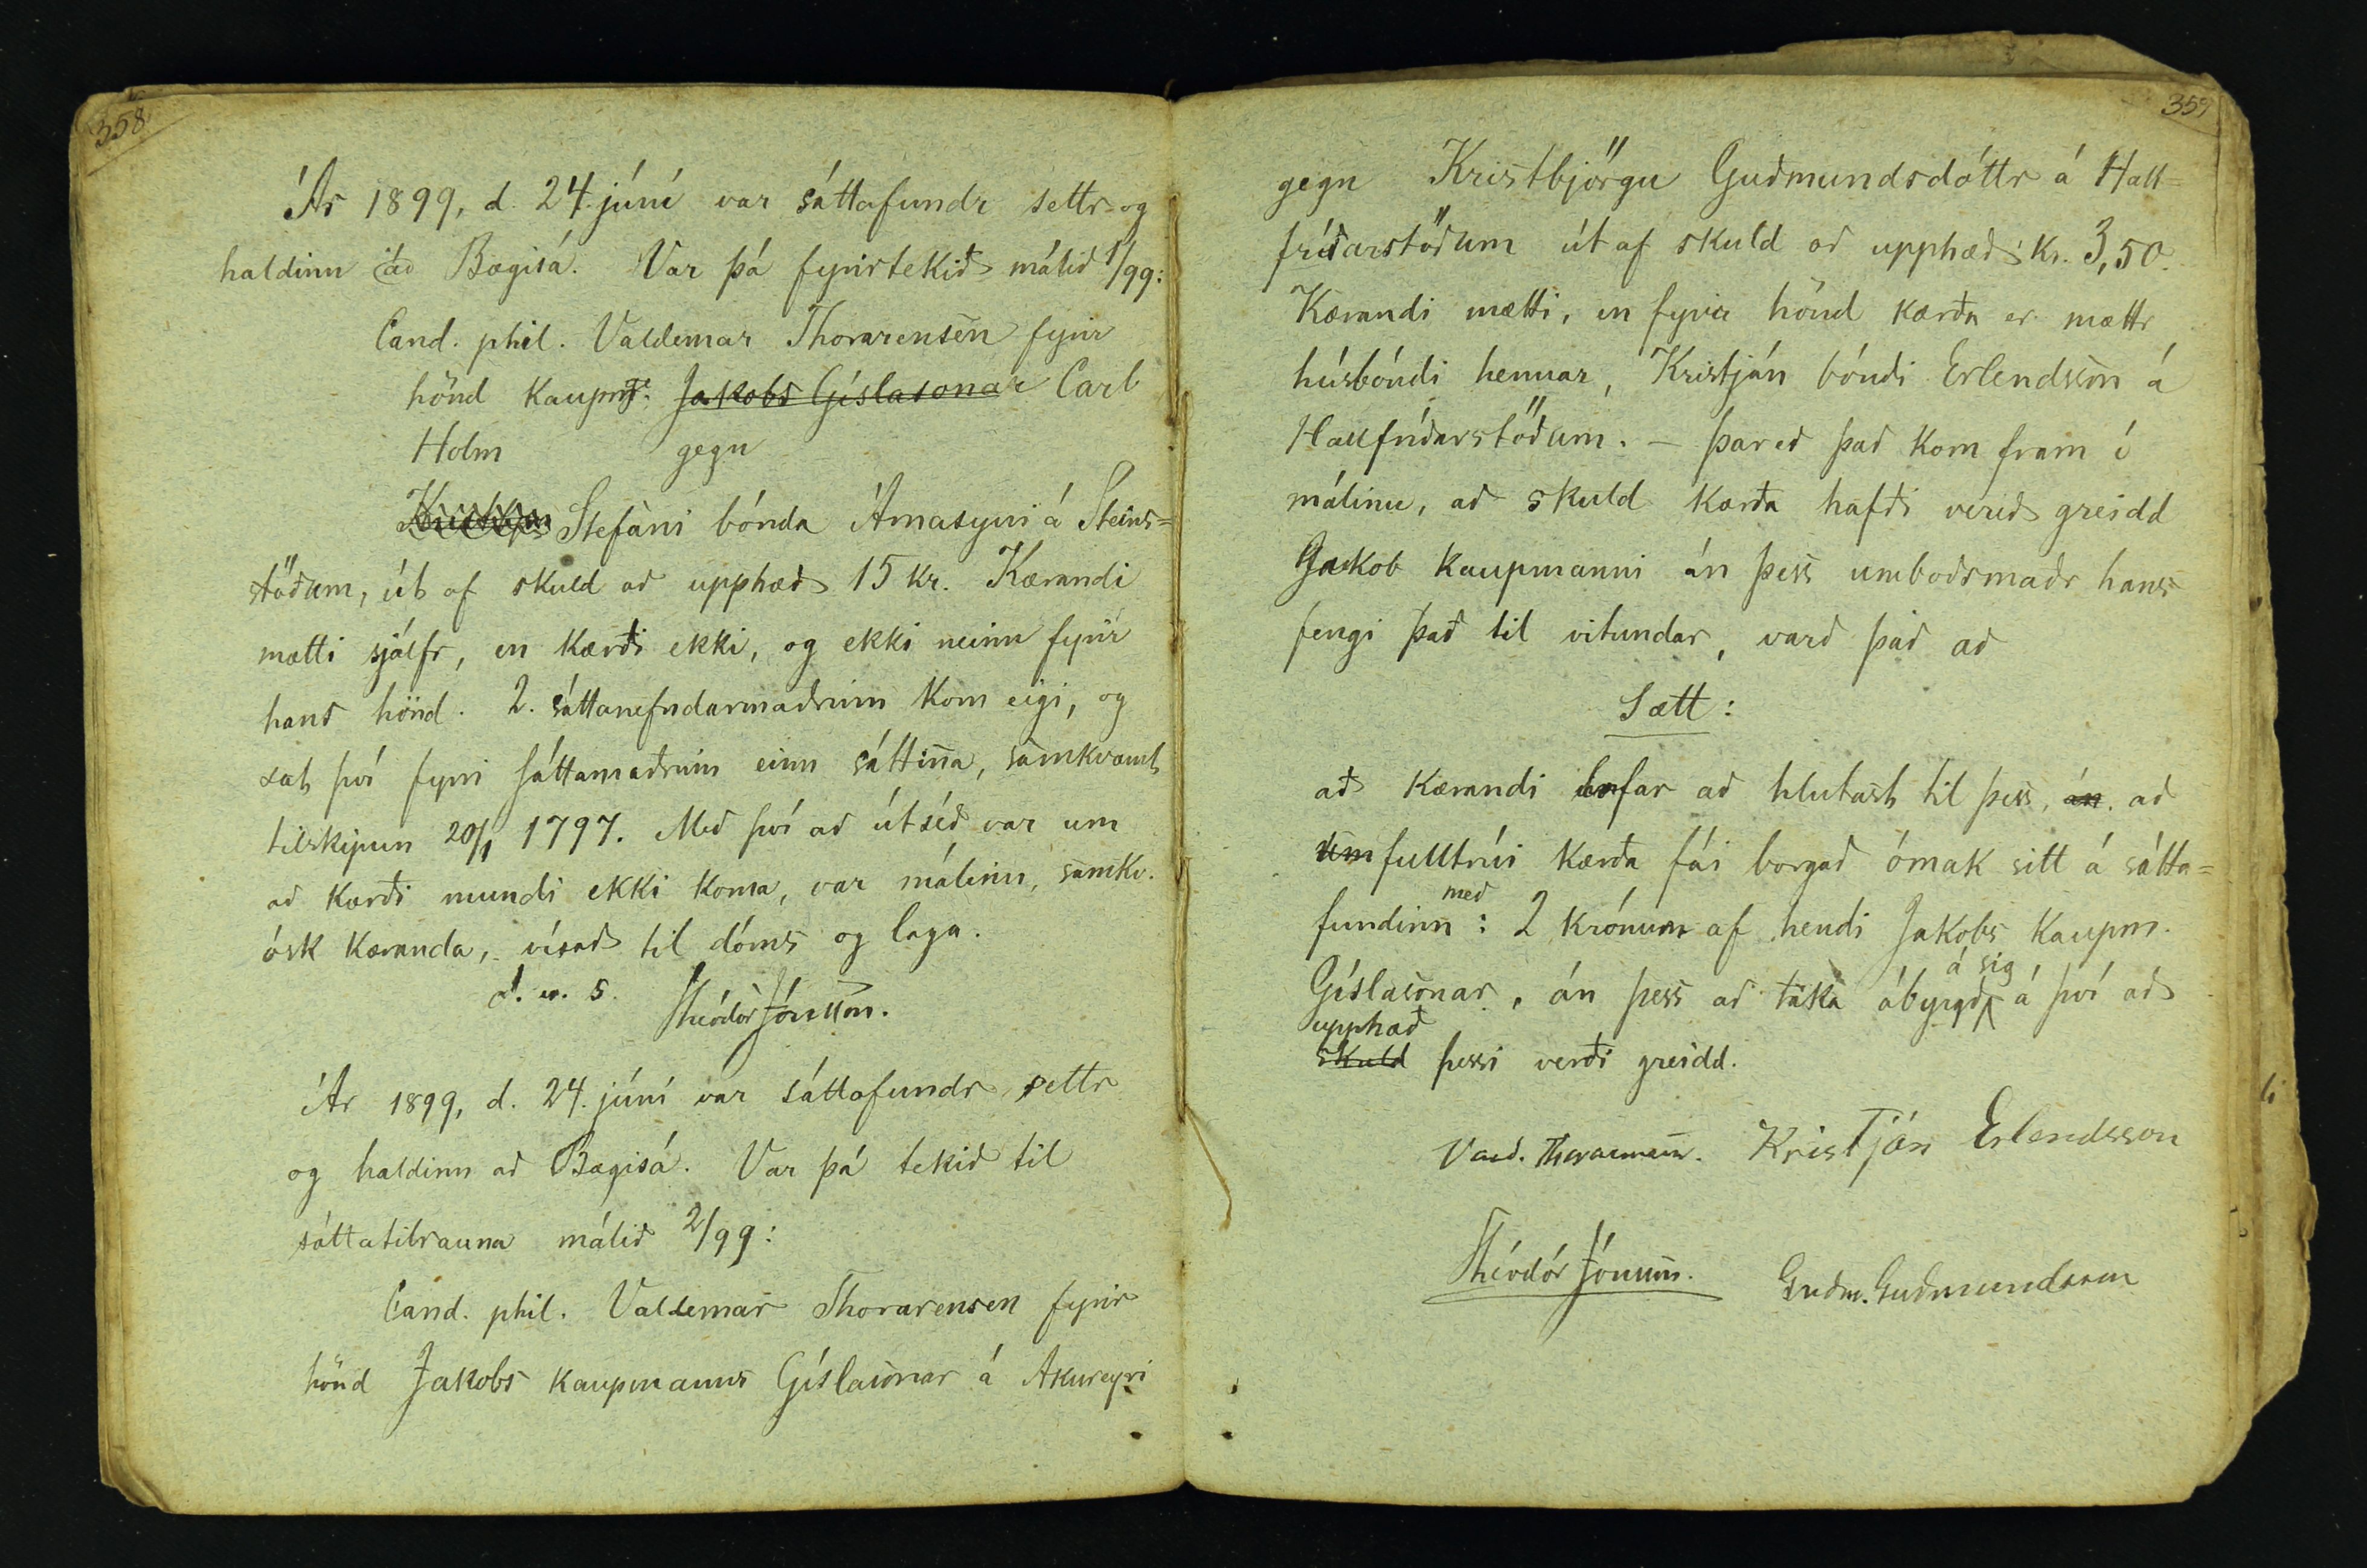 358
Ár 1899, d. 24. júní var sáttafundr settr og
haldinn að Bægisá. Var þá fyrirtekið málið 1/99:
Cand. phil. Valdemar Thorarensen fyrir
hönd kaupm. Jakobs Gíslasonar Carl
Holm gegn
Stefáni bónda Árnasyni á Steins=
stöðum, út af skuld að upphæð 15 kr. Kærandi
mætti sjálfr, en kærði ekki, og ekki neinn fyrir
hans hönd. 2. sáttanefndarmaðrinn kom eigi, og
sat því fyrri sáttamaðrinn einn sáttina, samkvæmt
tilskipun 20/1 1797. Með því að útséð var um
að kærði mundi ekki koma, var málinu, samkv.
ósk kæranda, vísað til dóms og laga.
d. u. s. Theódór Jónsson.
Ár 1899, d. 24. júní var sáttafundr settr
og haldinn að Bægisá. Var þá tekið til
sáttatilrauna málið 2/99:
Cand. phil. Valdemar Thorarensen fyrir
hönd Jakobs kaupmanns Gíslasonar á Akureyri
359
gegn Kristbjörgu Guðmundsdóttr á Hall=
fríðarstöðum út af skuld að upphæð kr. 3,50.
Kærandi mætti, en fyrir hönd kærða er mættr
húsbóndi hennar, Kristján bóndi Erlendsson á
Hallfríðarstöðum. – Þareð það kom fram í
málinu, að skuld kærða hafði verið greidd
Jakob kaupmanni án þess umboðsmaðr hans
fengi það til vitundar, varð það að
Sætt:
að kærandi lofar að hlutast til þess, án að
um fulltrúi kærða fái borgað ómak sitt á sátta=
fundinn með: 2 krónum af hendi Jakobs kaupm.
Gíslasonar, án þess að taka ábyrgð á sig á því að
skuld upphæð þessi verði greidd.
Vald. Thorarensen. Kristján Erlendsson
Theódór Jónsson. Guðm. Guðmundsson